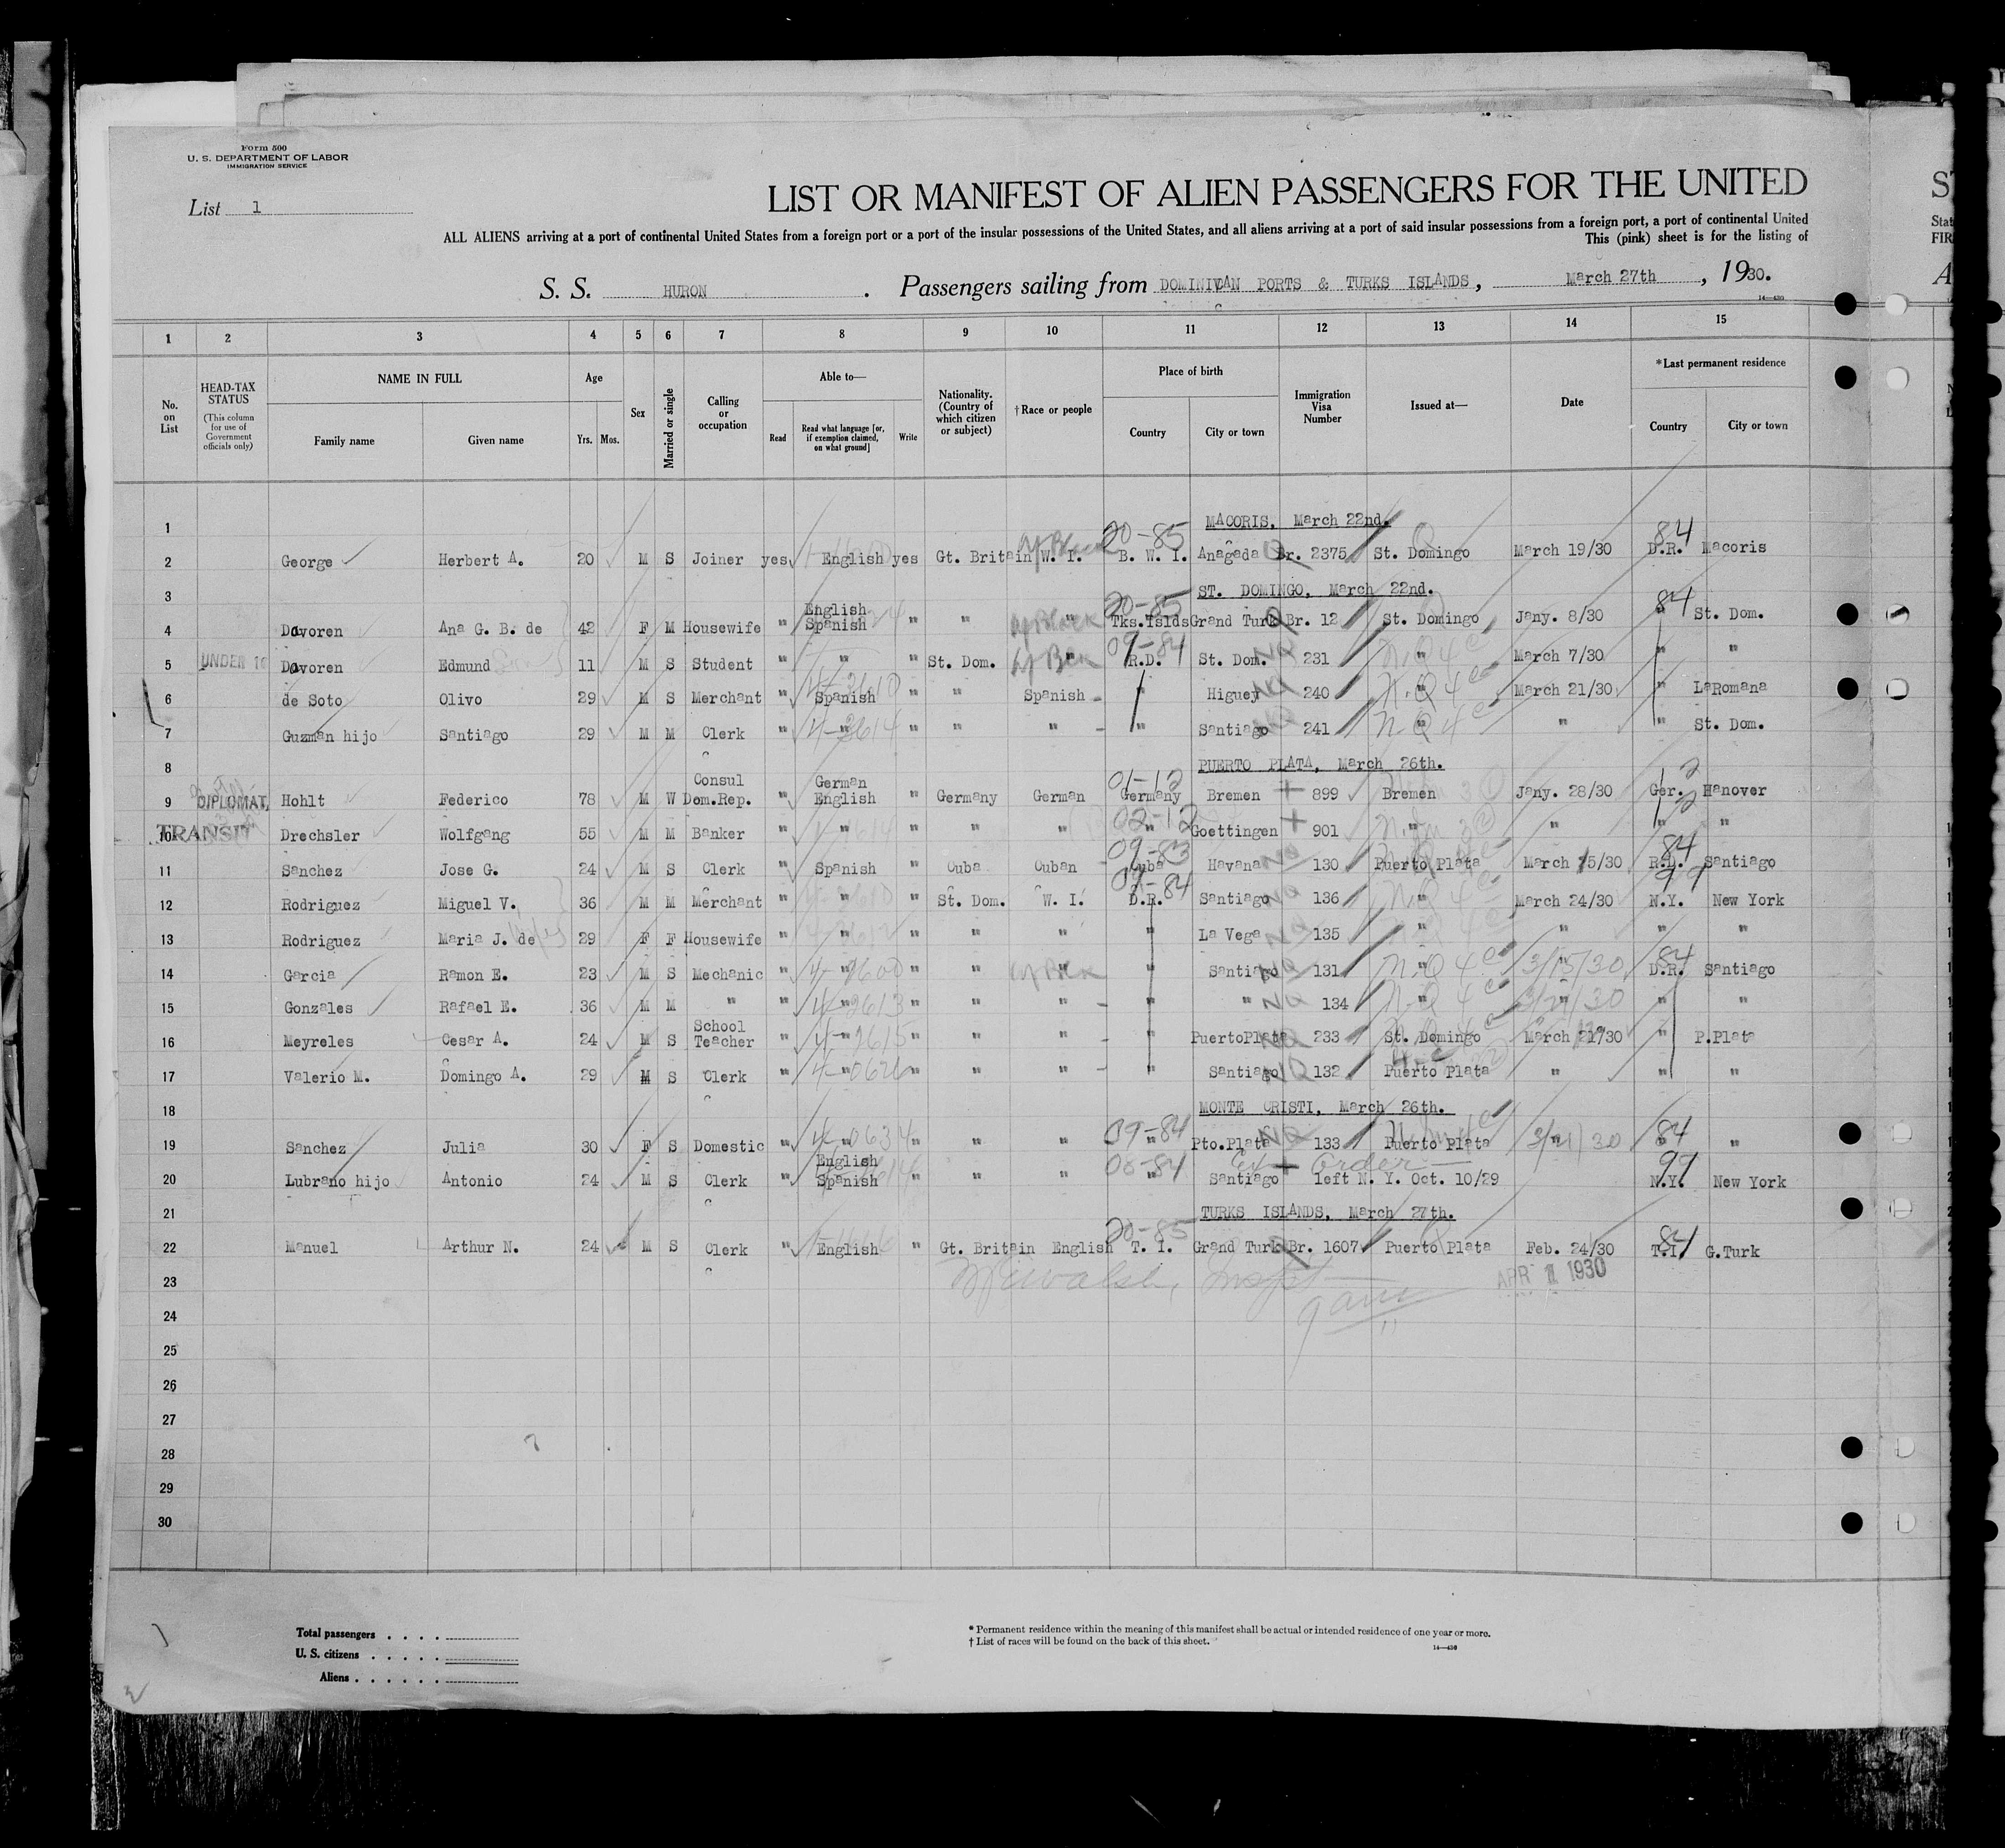 Form 500
U. S. DEPARTMENT OF LABOR
IMMIGRATION SERVICE
List 1
LIST OR MANIFEST OF ALIEN PASSENGERS FOR THE UNITED
ALL ALIENS arriving at a port of continental United States from a foreign port or a port of the insular possessions of the United States, and all aliens arriving at a port of said insular possessions from a foreign port, a port of continental United
This (pink) sheet is for the listing of
S. S. HURON. Passengers sailing from DOMINICAN PORTS & TURKS ISLANDS, March 27th, 1930.
14—430
1 2 3 4 5 6 7 8 9 10 11 12 13 14 15
No. on List
HEAD-TAX STATUS (This column for use of Government officials only)
NAME IN FULL
Family name Given name
Age
Yrs. Mos.
Sex
Married or single
Calling or occupation
Able to—
Read Read what language [or, if exemption claimed, on what ground] Write
Nationality. (Country of which citizen or subject)
†Race or people
Place of birth
Country City or town
Immigration Visa Number
Issued at—
Date
*Last permanent residence
Country City or town
1 MACORIS, March 22nd.
2 George Herbert A. 20 M S Joiner yes English yes Gt. Britain W. I. 20-85 B. W. I. Anagada Br. 2375 St. Domingo March 19/30 84 D.R. Macoris
3 ST. DOMINGO, March 22nd.
4 Davoren Ana G. B. de 42 F M Housewife " English Spanish " " " 20-85 Tks.Islds Grand Turk Br. 12 St. Domingo Jany. 8/30 84 " St. Dom.
5 UNDER 16 Davoren Edmund 11 M S Student " " " St. Dom. " 09-84 R.D. St. Dom. NQ 231 " March 7/30 " "
6 de Soto Olivo 29 M S Merchant " Spanish " " Spanish " Higuey NQ 240 " March 21/30 " LaRomana
7 Guzman hijo Santiago 29 M M Clerk " " " " " " Santiago 241 " " " St. Dom.
8 PUERTO PLATA, March 26th.
9 DIPLOMAT, Hohlt Federico 78 M W Consul Dom.Rep. " German English " Germany German 01-12 Germany Bremen 899 Bremen Jany. 28/30 Ger. Hanover
10 TRANSIT Drechsler Wolfgang 55 M M Banker " " " " " 02-12 " Goettingen 901 " " " "
11 Sanchez Jose G. 24 M S Clerk " Spanish " Cuba Cuban 09-83 Cuba Havana NQ 130 Puerto Plata March 15/30 84 R.D. Santiago
12 Rodriguez Miguel V. 36 M M Merchant " " " St. Dom. W. I. 09-84 D.R. Santiago NQ 136 " March 24/30 99 N.Y. New York
13 Rodriguez Maria J. de 29 F F Housewife " " " " " " La Vega NQ 135 " " " "
14 Garcia Ramon E. 23 M S Mechanic " " " " " " Santiago NQ 131 " 3/15/30 84 D.R. Santiago
15 Gonzales Rafael E. 36 M M " " " " " " " " NQ 134 " " "
16 Meyreles Cesar A. 24 M S School Teacher " " " " " " PuertoPlata NQ 233 St. Domingo March 21/30 " P.Plata
17 Valerio M. Domingo A. 29 M S Clerk " " " " " " Santiago NQ 132 Puerto Plata " " "
18 MONTE CRISTI, March 26th.
19 Sanchez Julia 30 F S Domestic " " " " " 09-84 " Pto.Plata NQ 133 Puerto Plata 3/21/30 84 " "
20 Lubrano hijo Antonio 24 M S Clerk " English Spanish " " " 08-84 " Santiago Ex Order left N. Y. Oct. 10/29 99 N.Y. New York
21 TURKS ISLANDS, March 27th.
22 Manuel Arthur N. 24 M S Clerk " English " Gt. Britain English 20-85 T. I. Grand Turk Br. 1607 Puerto Plata Feb. 24/30 84 T.I. G.Turk
23 APR 1 1930
24
25
26
27
28
29
30
Total passengers . . . .
U. S. citizens . . . . .
Aliens . . . . . .
* Permanent residence within the meaning of this manifest shall be actual or intended residence of one year or more.
† List of races will be found on the back of this sheet.
14—430